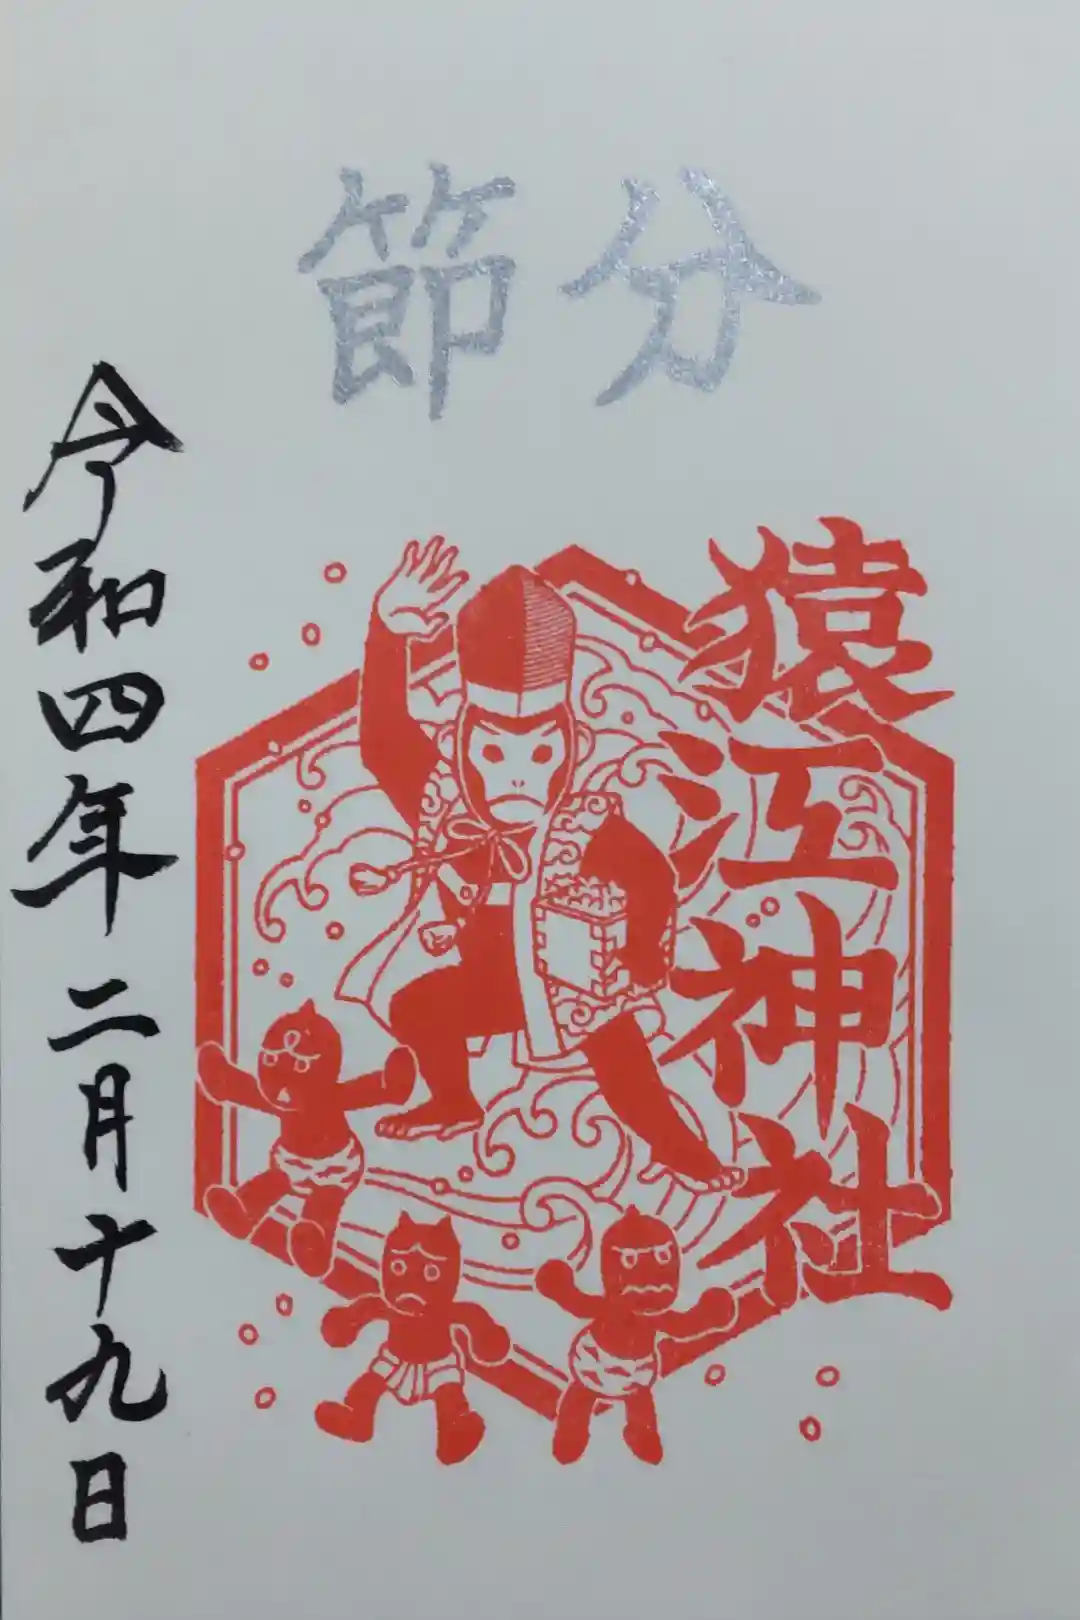 節分
猿江神社
令和四年二月十九日